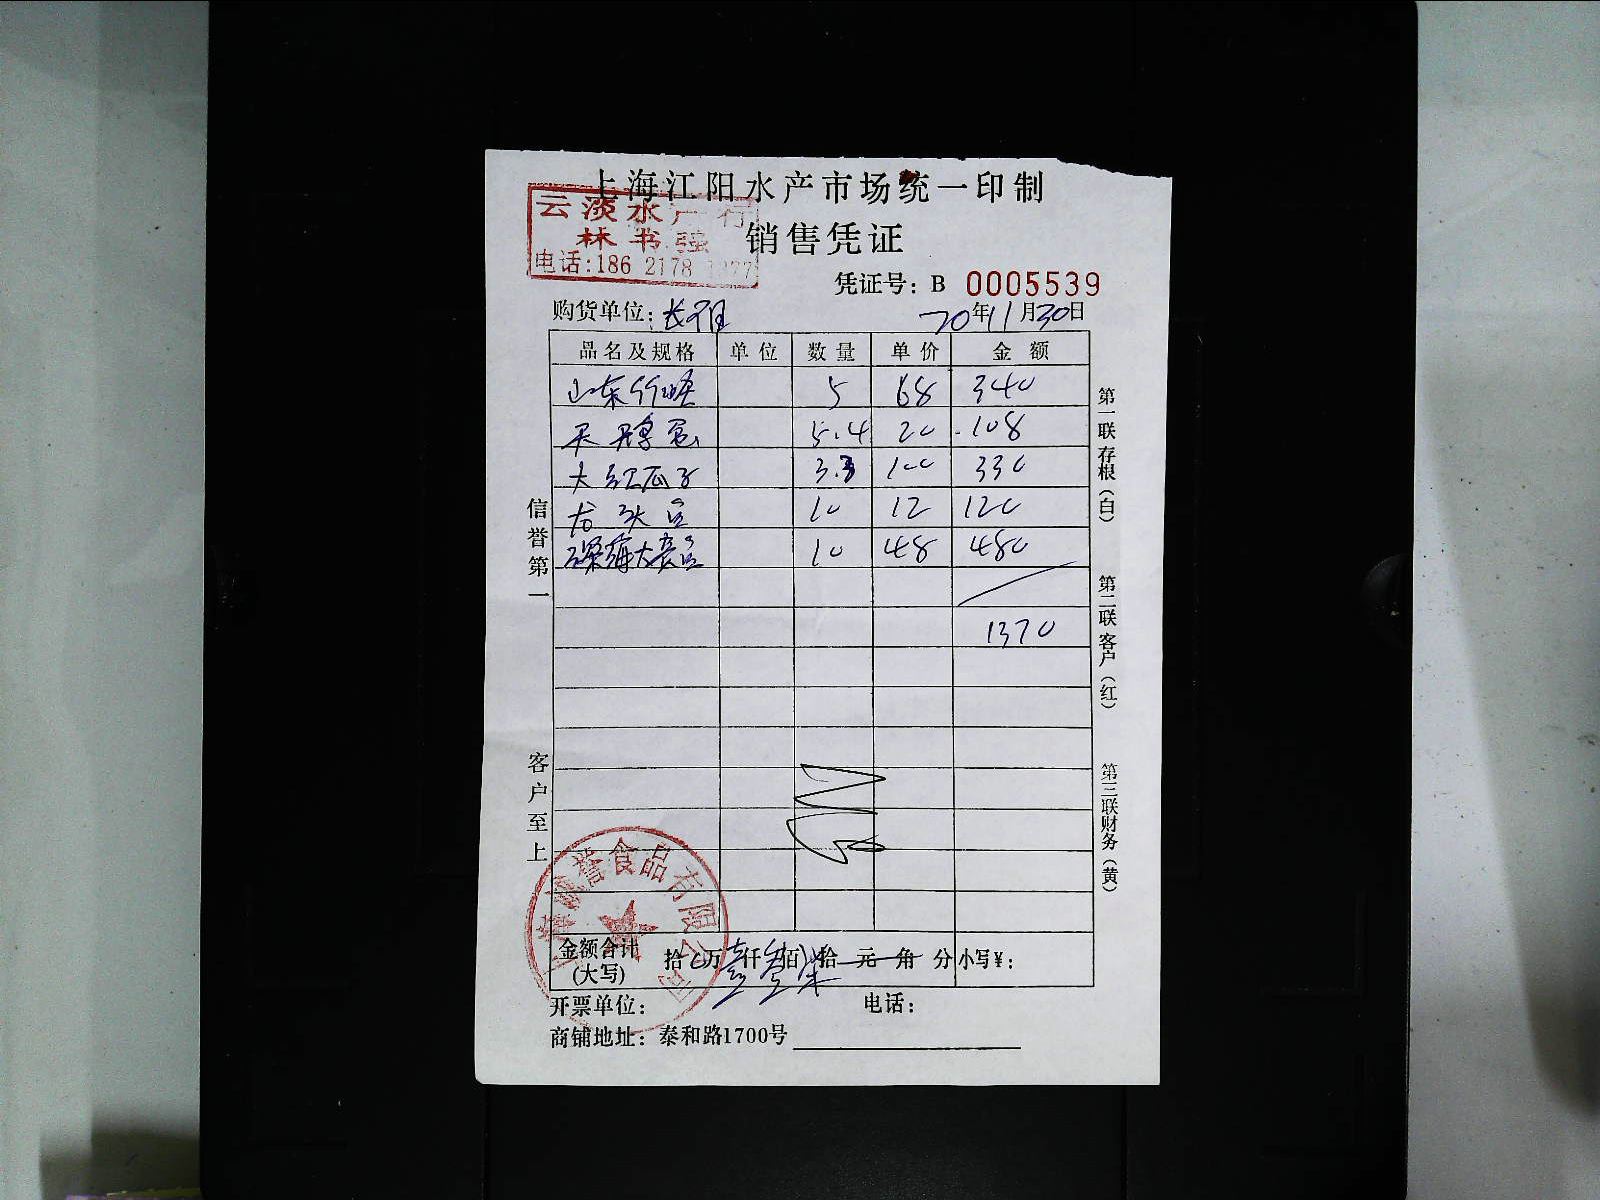 上海江阳水产市场统一印制
云淡水产行
林书强
电话:186 2178 1277
销售凭证
凭证号: B 0005539
购货单位:
20年11月30日
品名及规格 单位 数量 单价 金额
山东竹蛏 5 68 340
天鹅蛋 5.4 20 108
大红瓜子 3.3 100 330
龙头 10 12 120
深海大 10 48 480
1370
信誉第一
客户至上
第一联存根(白)
第二联客户(红)
第三联财务(黄)
誉食品有限公司
金额合计(大写) 拾万壹仟叁佰柒拾元角分 小写¥:
开票单位: 电话:
商铺地址: 泰和路1700号